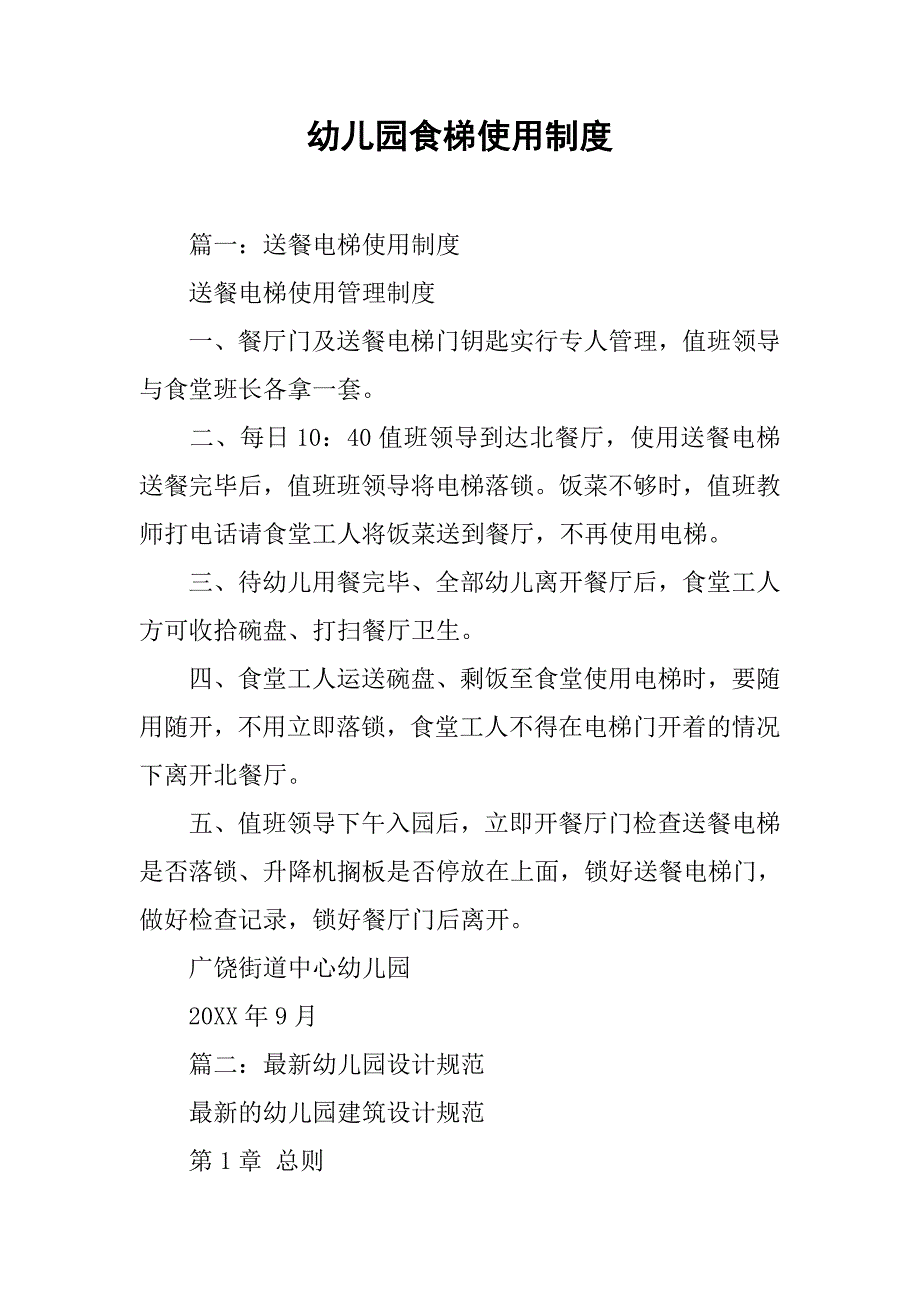 幼儿园食梯使用制度
篇一：送餐电梯使用制度
送餐电梯使用管理制度
一、餐厅门及送餐电梯门钥匙实行专人管理，值班领导
与食堂班长各拿一套。
二、每日 10：40 值班领导到达北餐厅，使用送餐电梯
送餐完毕后，值班班领导将电梯落锁。饭菜不够时，值班教
师打电话请食堂工人将饭菜送到餐厅，不再使用电梯。
三、待幼儿用餐完毕、全部幼儿离开餐厅后，食堂工人
方可收拾碗盘、打扫餐厅卫生。
四、食堂工人运送碗盘、剩饭至食堂使用电梯时，要随
用随开，不用立即落锁，食堂工人不得在电梯门开着的情况
下离开北餐厅。
五、值班领导下午入园后，立即开餐厅门检查送餐电梯
是否落锁、升降机搁板是否停放在上面，锁好送餐电梯门，
做好检查记录，锁好餐厅门后离开。
广饶街道中心幼儿园
20XX 年 9 月
篇二：最新幼儿园设计规范
最新的幼儿园建筑设计规范
第 1 章 总则